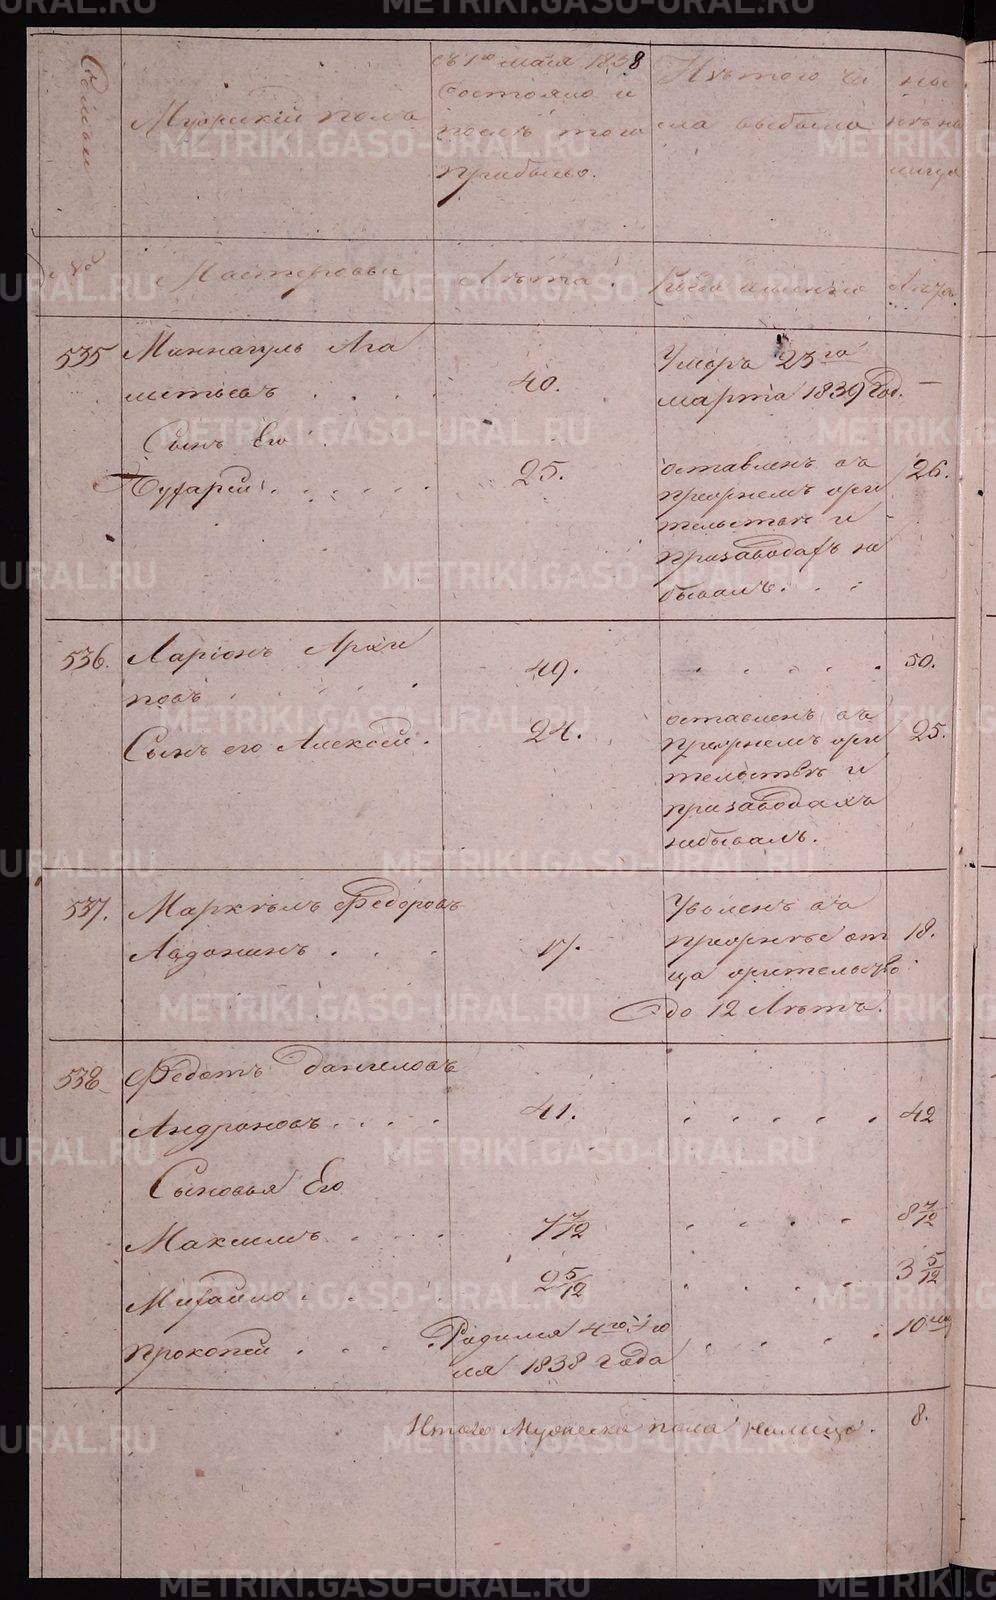 METRIKI.GASO-URAL.RU
Семьи
Мужескiй полъ
съ 1го маiя 1838
состояло и
послѣ того
прибыло.
Изъ того чи
сла выбыло
ны
нѣ на
лицо
№
Мастеровые
Лѣта.
Когда именно
Лѣта
535
Миннагуль Ага
митьевъ . . . .
40.
Умеръ 23го
марта 1839 Год.
—
Сынъ Его
25.
оставленъ въ
прежнемъ жи
тельствѣ и
призаводахъ не
бывалъ. . .
26.
536.
Ларiонъ Архи
повъ . . . .
49.
. . . . .
50.
Сынъ его Алексѣй.
24.
оставленъ въ
прежнемъ жи
тельствѣ и
призаводахъ
небывалъ.
25.
537.
Маркѣлъ Федоровъ
Авдонинъ . . .
17.
Уволенъ въ
прежнѣе от
ца жительство
до 12 Лѣтъ.
18.
538
Федотъ Даниловъ
Андроновъ . . . .
41.
. . . . .
42
Сыновья Его
Максимъ . . . .
7 7/12
. . . .
8 7/12
Михайло . . . .
2 5/12
. . . .
3 5/12
Прокопей . . . .
Родился 4го Iю
ля 1838 года
. . . .
10 мѣ
Итого Мужеска пола налицо.
8.